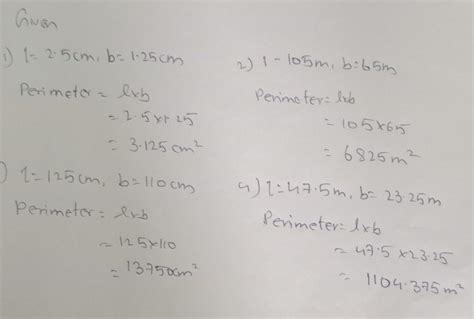 Given
1) l = 2.5cm, b = 1.25cm
Perimeter = lxb
= 2.5 x 1.25
= 3.125 cm²
2) l - 105m, b = 65m
Perimeter = lxb
= 105 x 65
= 6825m²
) l = 125cm, b = 110cm
Perimeter = lxb
= 125 x 110
= 13750cm²
4) l = 47.5m, b = 23.25m
Perimeter = lxb
= 47.5 x 23.25
= 1104.375m²